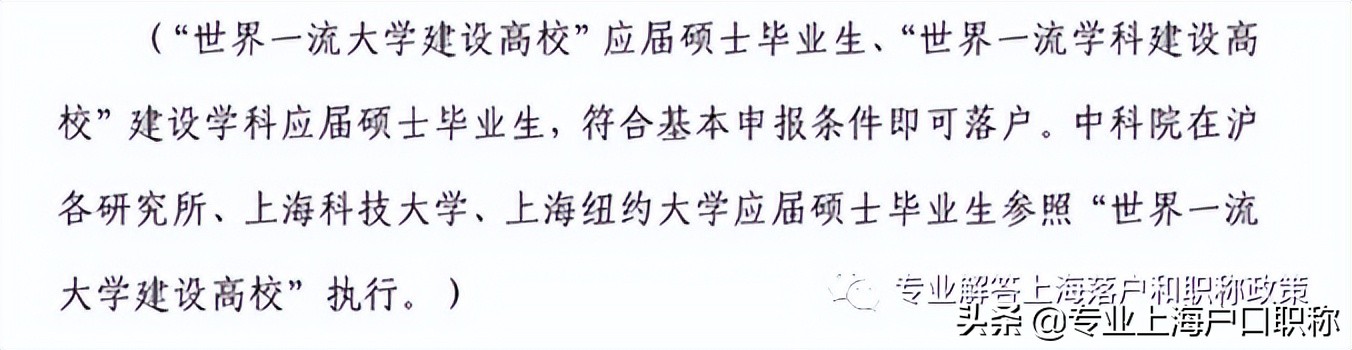 （“世界一流大学建设高校”应届硕士毕业生、“世界一流学科建设高
校”建设学科应届硕士毕业生，符合基本申报条件即可落户。中科院在沪
各研究所、上海科技大学、上海纽约大学应届硕士毕业生参照“世界一流
大学建设高校”执行。）
专业解答上海落户和职称政策
头条 @专业上海户口职称